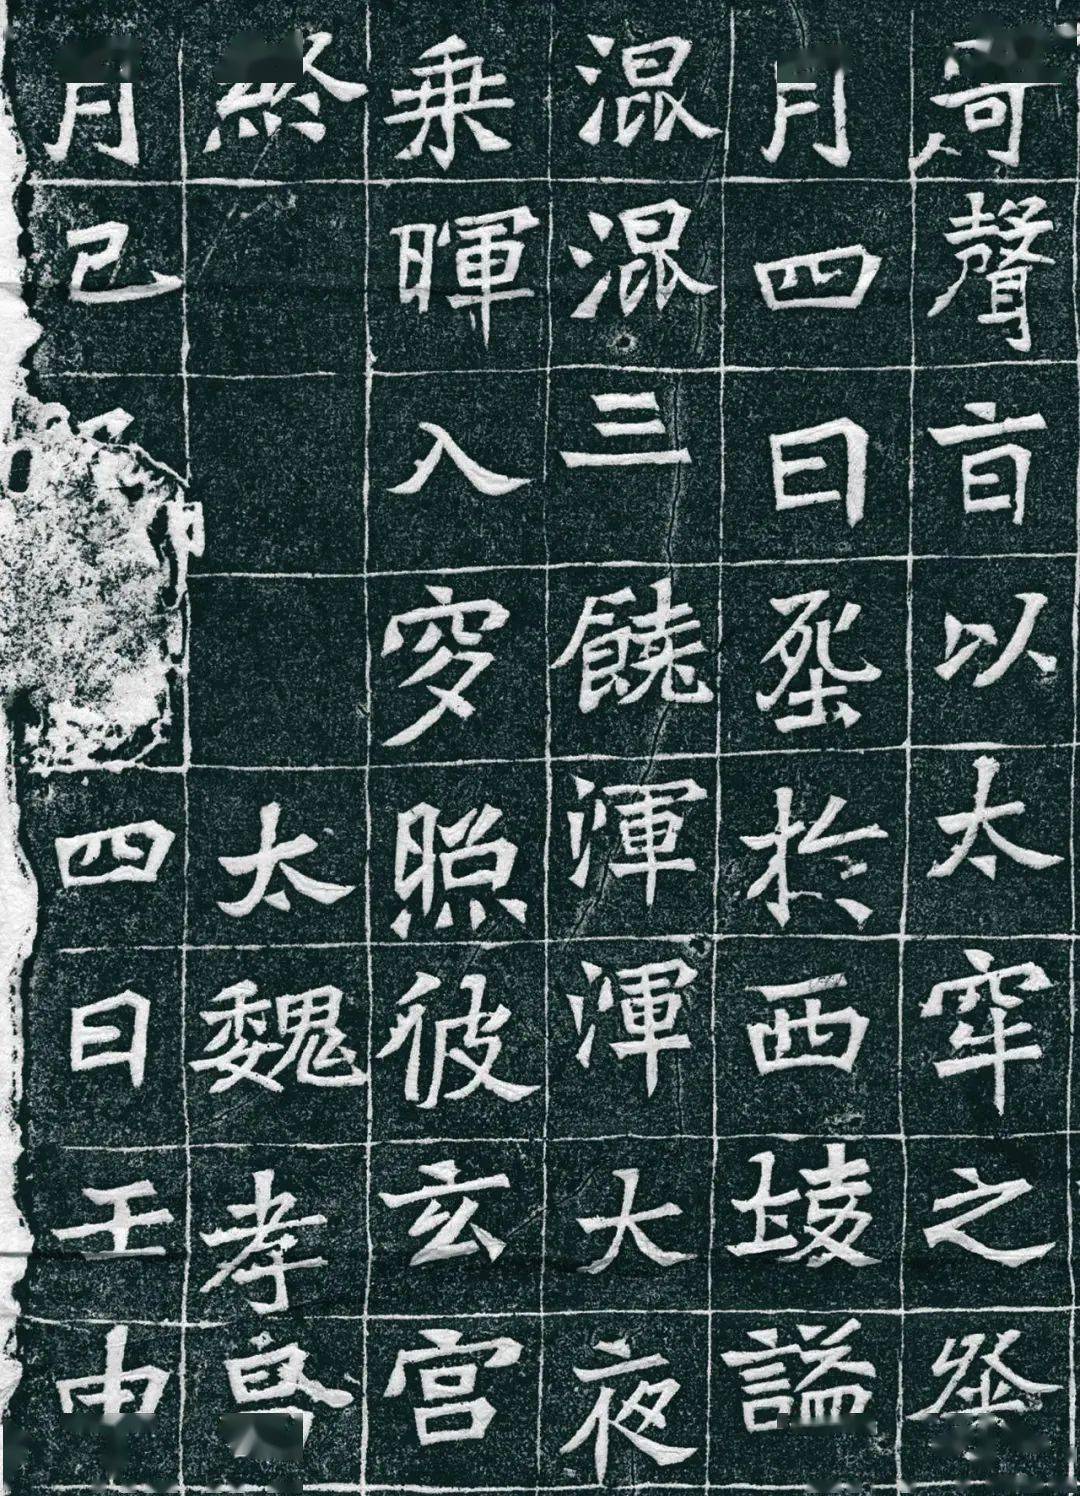 聲以太牢之祭
月四日塟於西堎謚
混混三饒渾渾大夜
乗暉入穸照彼玄宮
終　太魏孝昌
月己四日壬申